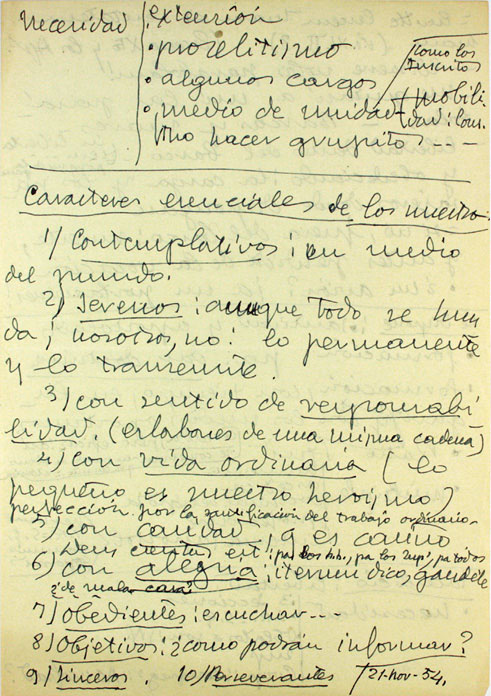 Necesidad
extensión
• proselitismo
• algunos cargos
• medio de unidad
no hacer grupito - - -
como los
Inscritos
mobili-
dad:
Caracteres esenciales de los nuestros
1) Contemplativos: en medio
del mundo.
2) Serenos: aunque todo se hun
da; nosotros, no: lo permanente
y lo transeunte.
3) con sentido de responsabi
lidad. (eslabones de una misma cadena)
4) con vida ordinaria (lo
pequeño es nuestro heroísmo)
perfección por la santificación del trabajo ordinario-
5) con caridad, q es cariño
Deus caritas est: pa los pa los pa todos
6) con alegría: iterum dico, gaudete
¿de malas caras?
7) Obedientes: escuchar - - -
8) Objetivos: ¿como podrán informar?
9) Sinceros. 10) Perseverantes 21-nov-54.